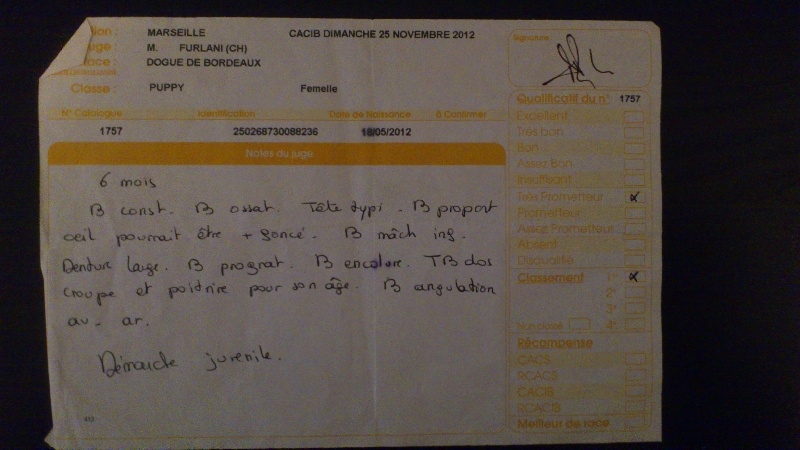 MARSEILLE CACIB DIMANCHE 25 NOVEMBRE 2012
M. FURLANI (CH)
DOGUE DE BORDEAUX
Classe : PUPPY Femelle
N° Catalogue Identification Date de Naissance à Confirmer
1757 250268730088236 18/05/2012
Notes du juge
6 mois
B const. B ossat. Tête typi. B proport
oeil pourrait être + foncé. B mâch inf.
Denture large. B prognat. B encolure. TB dos
croupe et poitrine pour son âge. B angulation
av. ar.
Démarche juvenile.
Signature
Qualificatif du n° 1757
Excellent
Très bon
Bon
Assez Bon
Insuffisant
Très Prometteur x
Prometteur
Assez Prometteur
Absent
Disqualifié
Classement 1er x
2e
3e
Non classé 4e
Récompense
CACS
RCACS
CACIB
RCACIB
Meilleur de race